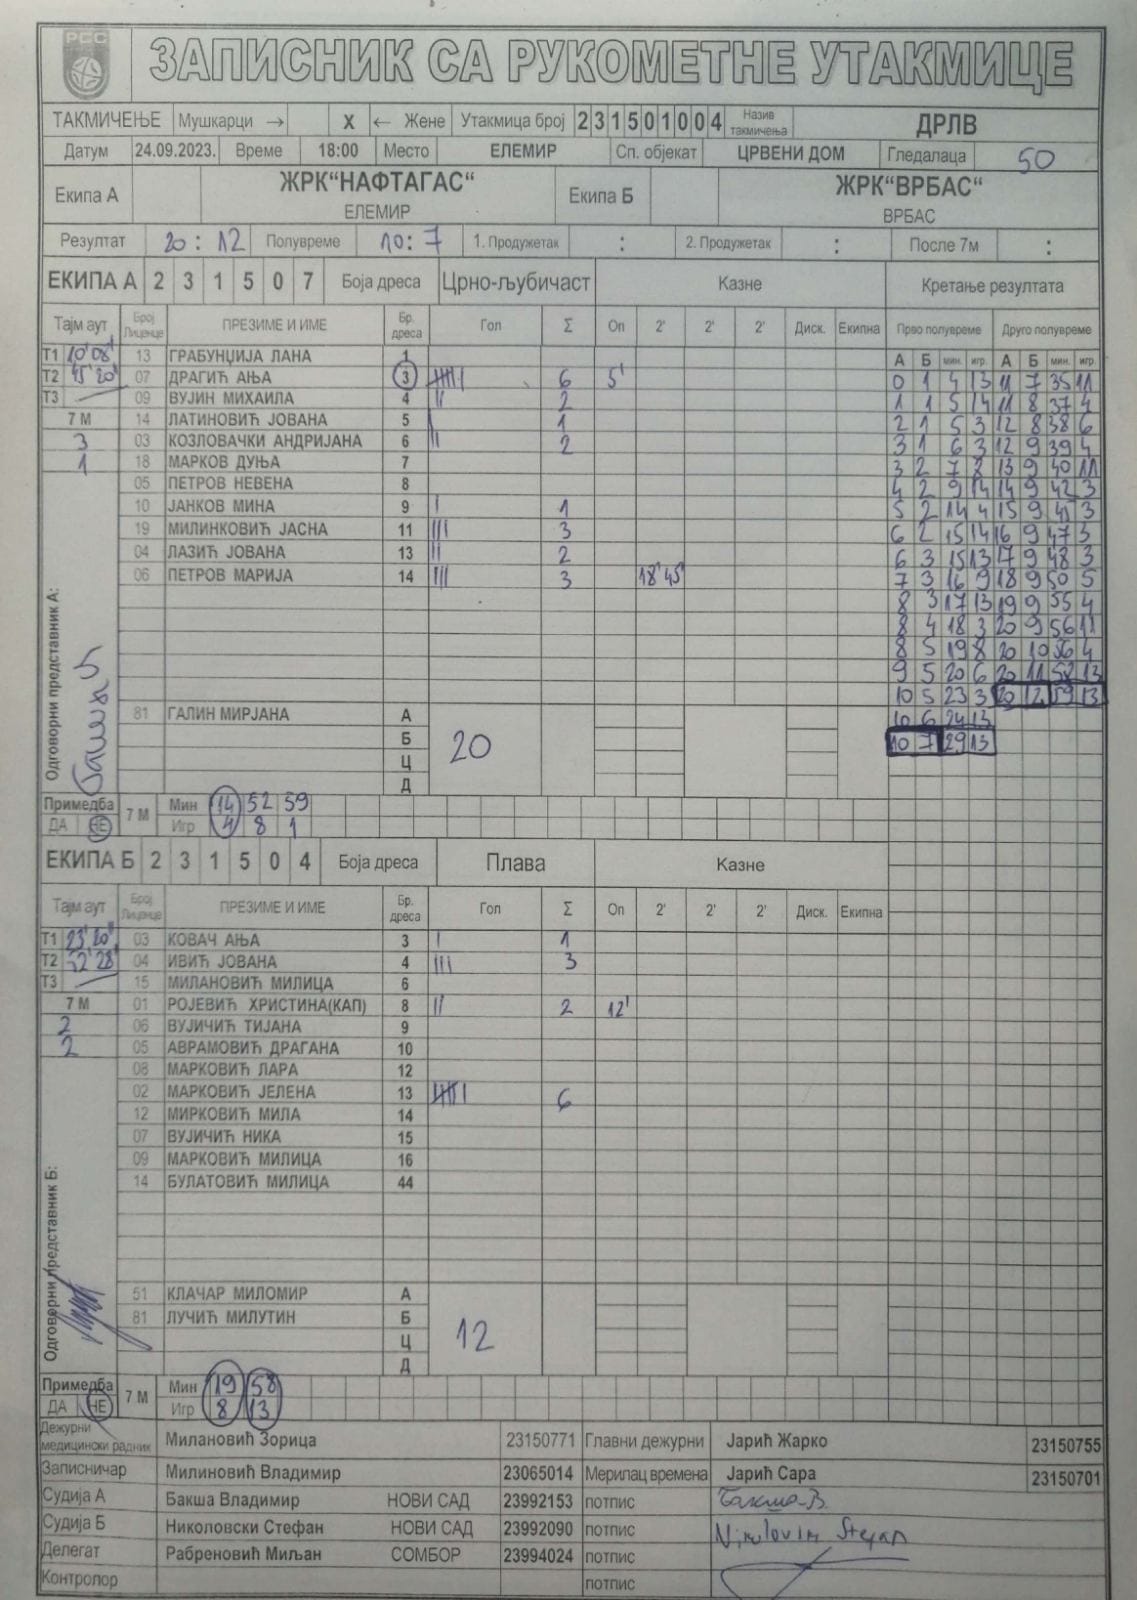 РСС
ЗАПИСНИК СА РУКОМЕТНЕ УТАКМИЦЕ
ТАКМИЧЕЊЕ Мушкарци → X ← Жене Утакмица број 2 3 1 5 0 1 0 0 4 Назив такмичења ДРЛВ
Датум 24.09.2023. Време 18:00 Место ЕЛЕМИР Сп. објекат ЦРВЕНИ ДОМ Гледалаца 50
Екипа А ЖРК"НАФТАГАС" ЕЛЕМИР Екипа Б ЖРК"ВРБАС" ВРБАС
Резултат 20 : 12 Полувреме 10 : 7 1. Продужетак : 2. Продужетак : После 7м :
ЕКИПА А 2 3 1 5 0 7 Боја дреса Црно-љубичаст Казне Кретање резултата
Тајм аут Број Лиценце ПРЕЗИМЕ И ИМЕ Бр. дреса Гол Σ Оп 2' 2' 2' Диск. Екипна Прво полувреме Друго полувреме
А Б мин. игр. А Б мин. игр.
Т1 10'08' 13 ГРАБУНЏИЈА ЛАНА 1
Т2 45'20' 07 ДРАГИЋ АЊА 3 6 5' 0 1 4 13 11 7 35 11
Т3 09 ВУЈИН МИХАИЛА 4 2 1 1 5 14 11 8 37 4
7 М 14 ЛАТИНОВИЋ ЈОВАНА 5 1 2 1 5 3 12 8 38 6
3 03 КОЗЛОВАЧКИ АНДРИЈАНА 6 2 3 1 6 3 12 9 39 4
1 18 МАРКОВ ДУЊА 7 3 2 7 8 13 9 40 11
05 ПЕТРОВ НЕВЕНА 8 4 2 9 14 14 9 42 3
10 ЈАНКОВ МИНА 9 1 5 2 14 4 15 9 45 3
19 МИЛИНКОВИЋ ЈАСНА 11 3 6 2 15 14 16 9 47 3
04 ЛАЗИЋ ЈОВАНА 13 2 6 3 15 13 17 9 48 3
06 ПЕТРОВ МАРИЈА 14 3 18'45' 7 3 16 9 18 9 50 5
8 3 17 13 19 9 55 4
8 4 18 3 20 9 56 11
8 5 19 8 20 10 56 4
9 5 20 6 20 11 58 13
10 5 23 3 20 12 59 13
81 ГАЛИН МИРЈАНА А 10 6 24 13
Б 20 10 7 29 13
Ц
Д
Одговорни представник А:
Примедба ДА НЕ 7 М Мин 14 52 59
Игр 4 8 1
ЕКИПА Б 2 3 1 5 0 4 Боја дреса Плава Казне
Тајм аут Број Лиценце ПРЕЗИМЕ И ИМЕ Бр. дреса Гол Σ Оп 2' 2' 2' Диск. Екипна
Т1 23'20' 03 КОВАЧ АЊА 3 1
Т2 52'28' 04 ИВИЋ ЈОВАНА 4 3
Т3 15 МИЛАНОВИЋ МИЛИЦА 6
7 М 01 РОЈЕВИЋ ХРИСТИНА(КАП) 8 2 12'
2 06 ВУЈИЧИЋ ТИЈАНА 9
2 05 АВРАМОВИЋ ДРАГАНА 10
08 МАРКОВИЋ ЛАРА 12
02 МАРКОВИЋ ЈЕЛЕНА 13 6
12 МИРКОВИЋ МИЛА 14
07 ВУЈИЧИЋ НИКА 15
09 МАРКОВИЋ МИЛИЦА 16
14 БУЛАТОВИЋ МИЛИЦА 44
51 КЛАЧАР МИЛОМИР А
81 ЛУЧИЋ МИЛУТИН Б 12
Ц
Д
Одговорни представник Б:
Примедба ДА НЕ 7 М Мин 19 58
Игр 8 13
Дежурни медицински радник Милановић Зорица 23150771 Главни дежурни Јарић Жарко 23150755
Записничар Милиновић Владимир 23065014 Мерилац времена Јарић Сара 23150701
Судија А Бакша Владимир НОВИ САД 23992153 потпис Бакша В.
Судија Б Николовски Стефан НОВИ САД 23992090 потпис
Делегат Рабреновић Миљан СОМБОР 23994024 потпис
Контролор потпис